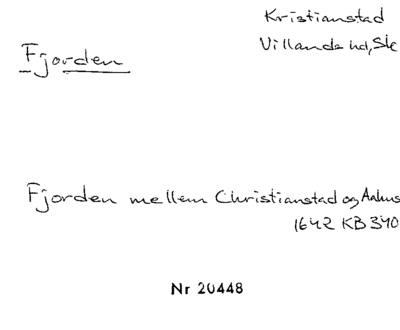 Kristianstad
Villands hd, Sk
Fjorden
Fjorden mellem Christianstad og Aahus
1642 KB 340
Nr 20448